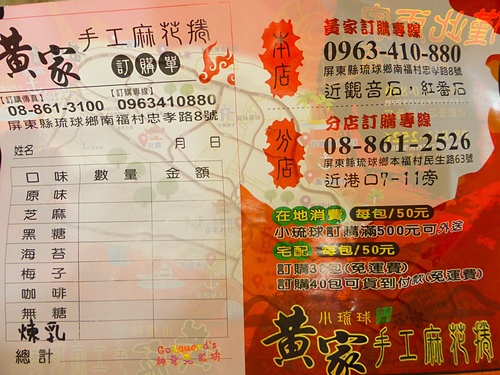 黃家 手工麻花捲
訂購單
【訂購傳真】 【訂購專線】
08-861-3100 0963410880
屏東縣琉球鄉南福村忠孝路8號
姓名 月 日
口味 數量 金額
原味
芝麻
黑糖
海苔
梅子
咖啡
無糖
煉乳
總計
本店
黃家訂購專線
0963-410-880
屏東縣琉球鄉南福村忠孝路8號
近觀音石、紅番石
分店
分店訂購專線
08-861-2526
屏東縣琉球鄉本福村民生路63號
近港口7-11旁
在地消費 每包/50元
小琉球訂購滿500元可外送
宅配 每包/50元
訂購30包(免運費)
訂購40包可貨到付款(免運費)
小琉球
黃家手工麻花捲